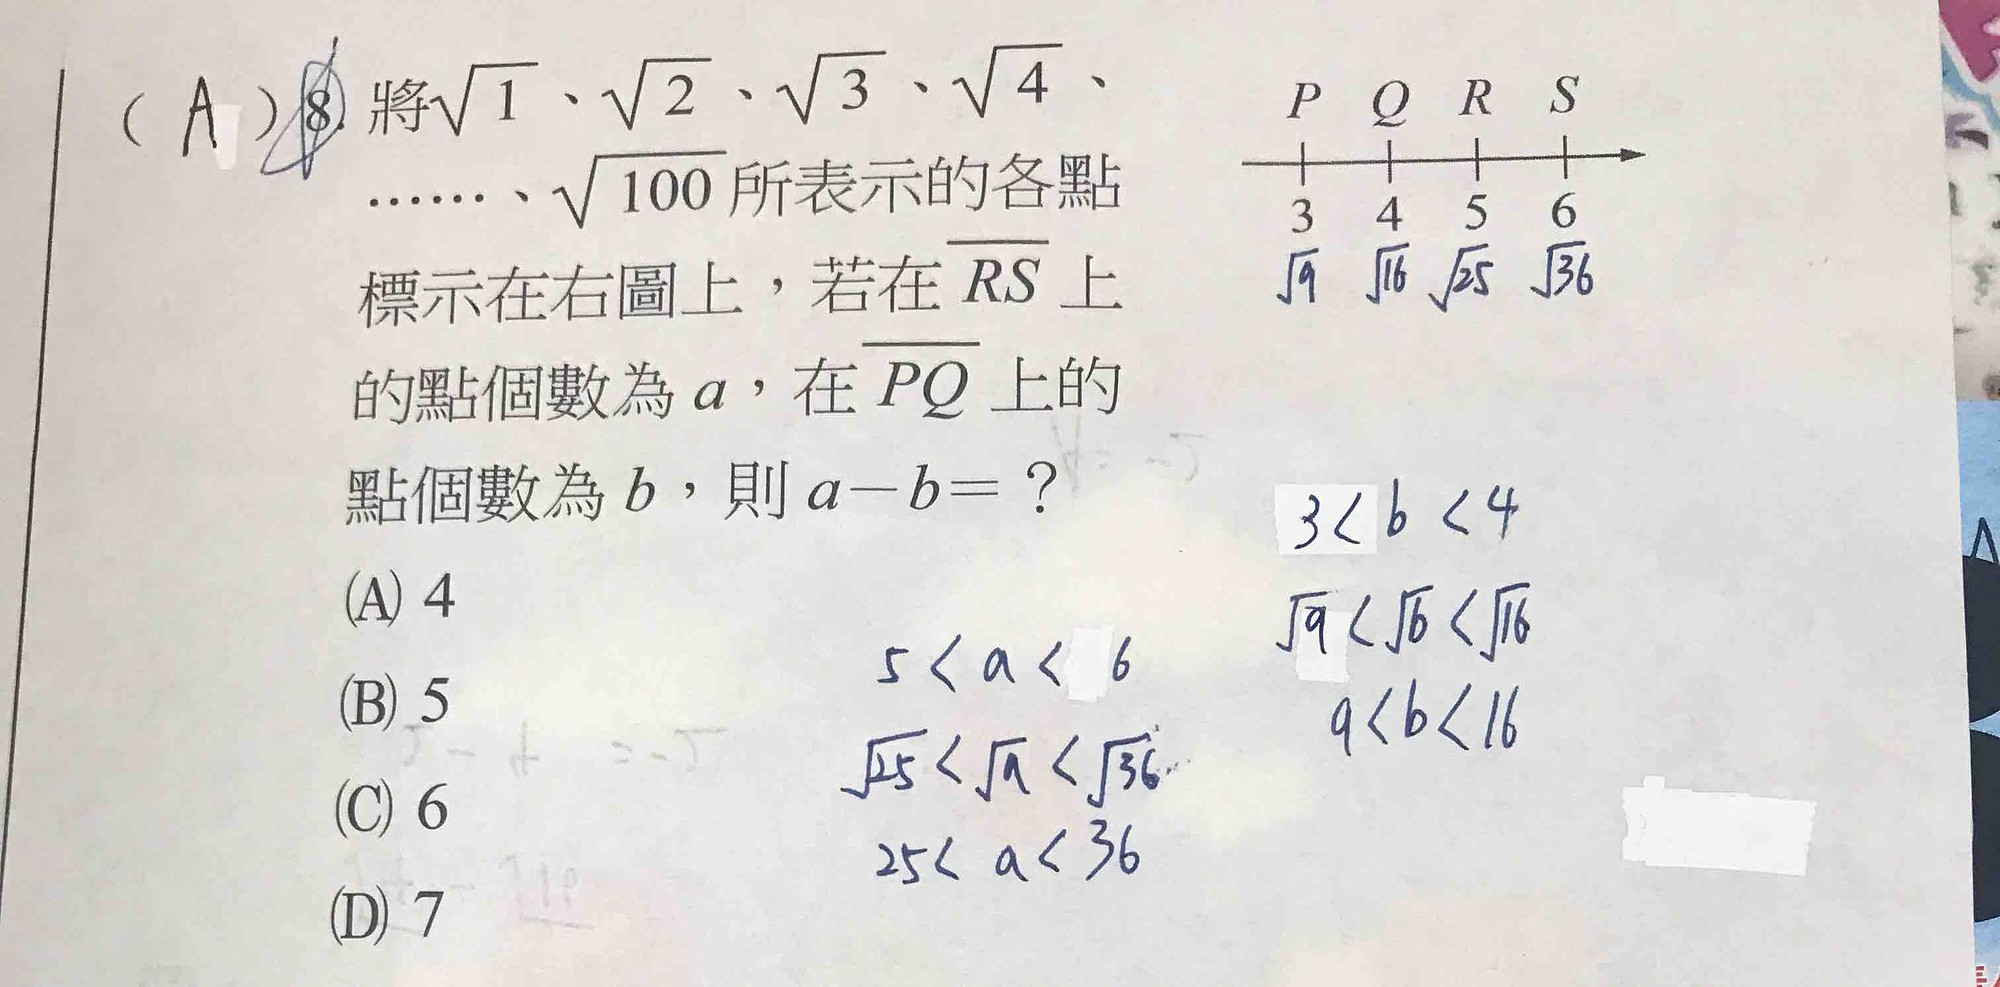 ( A ) 8. 將√1、√2、√3、√4、
……、√100所表示的各點
標示在右圖上，若在 RS 上
的點個數為 a，在 PQ 上的
點個數為 b，則 a－b＝？
(A) 4
(B) 5
(C) 6
(D) 7
P Q R S
3 4 5 6
√9 √16 √25 √36
3 < b < 4
√9 < √b < √16
9 < b < 16
5 < a < 6
√25 < √a < √36
25 < a < 36